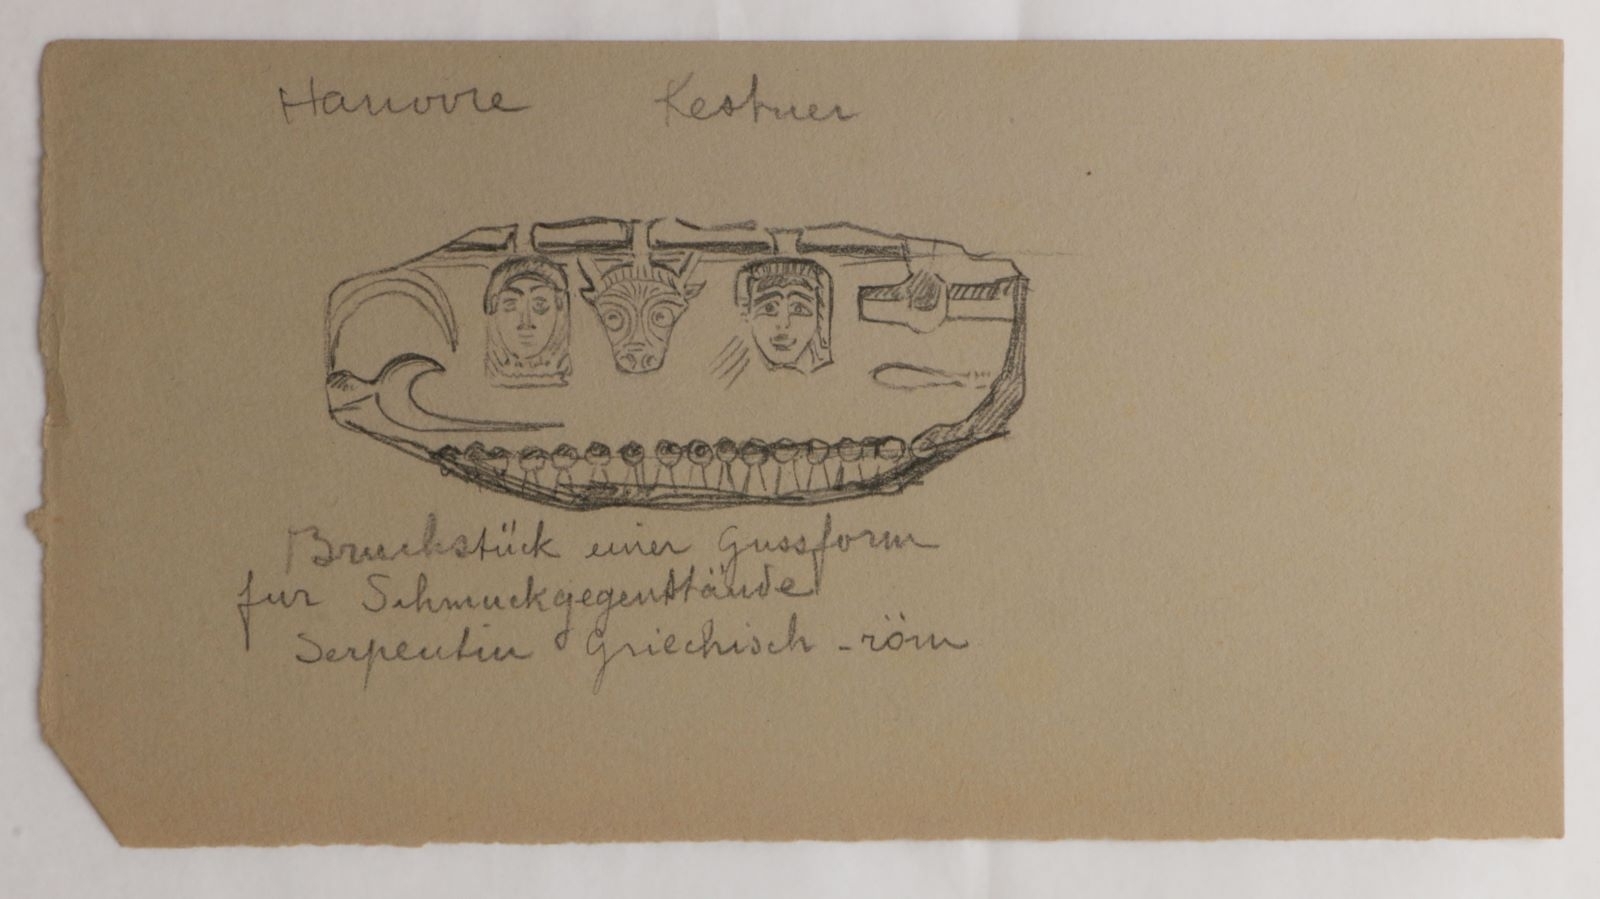 Hanovre Kestner
Bruchstück einer Gussform
fur Schmuckgegenstände
Serpentin Griechisch - röm